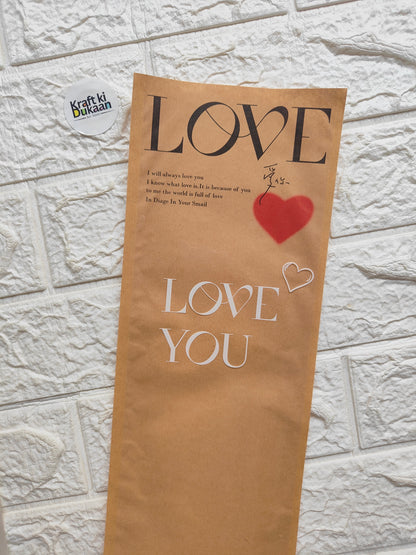 Kraft ki
Dukaan
LOVE
I will always love you
I know what love is.It is because of you
to me the world is full of love
In Diage In Your Smail
LOVE
YOU